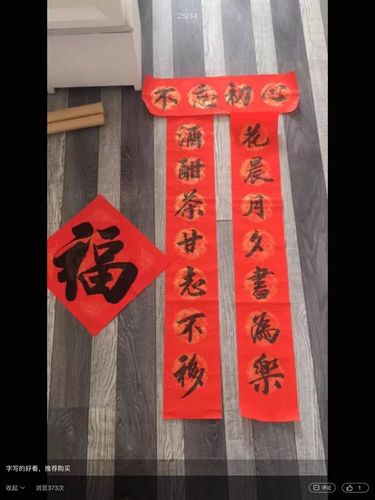 25/34
不忘初心
花晨月夕書為樂
酒酣茶甘志不移
福
字写的好看，推荐购买
收起 浏览373次 评论 1